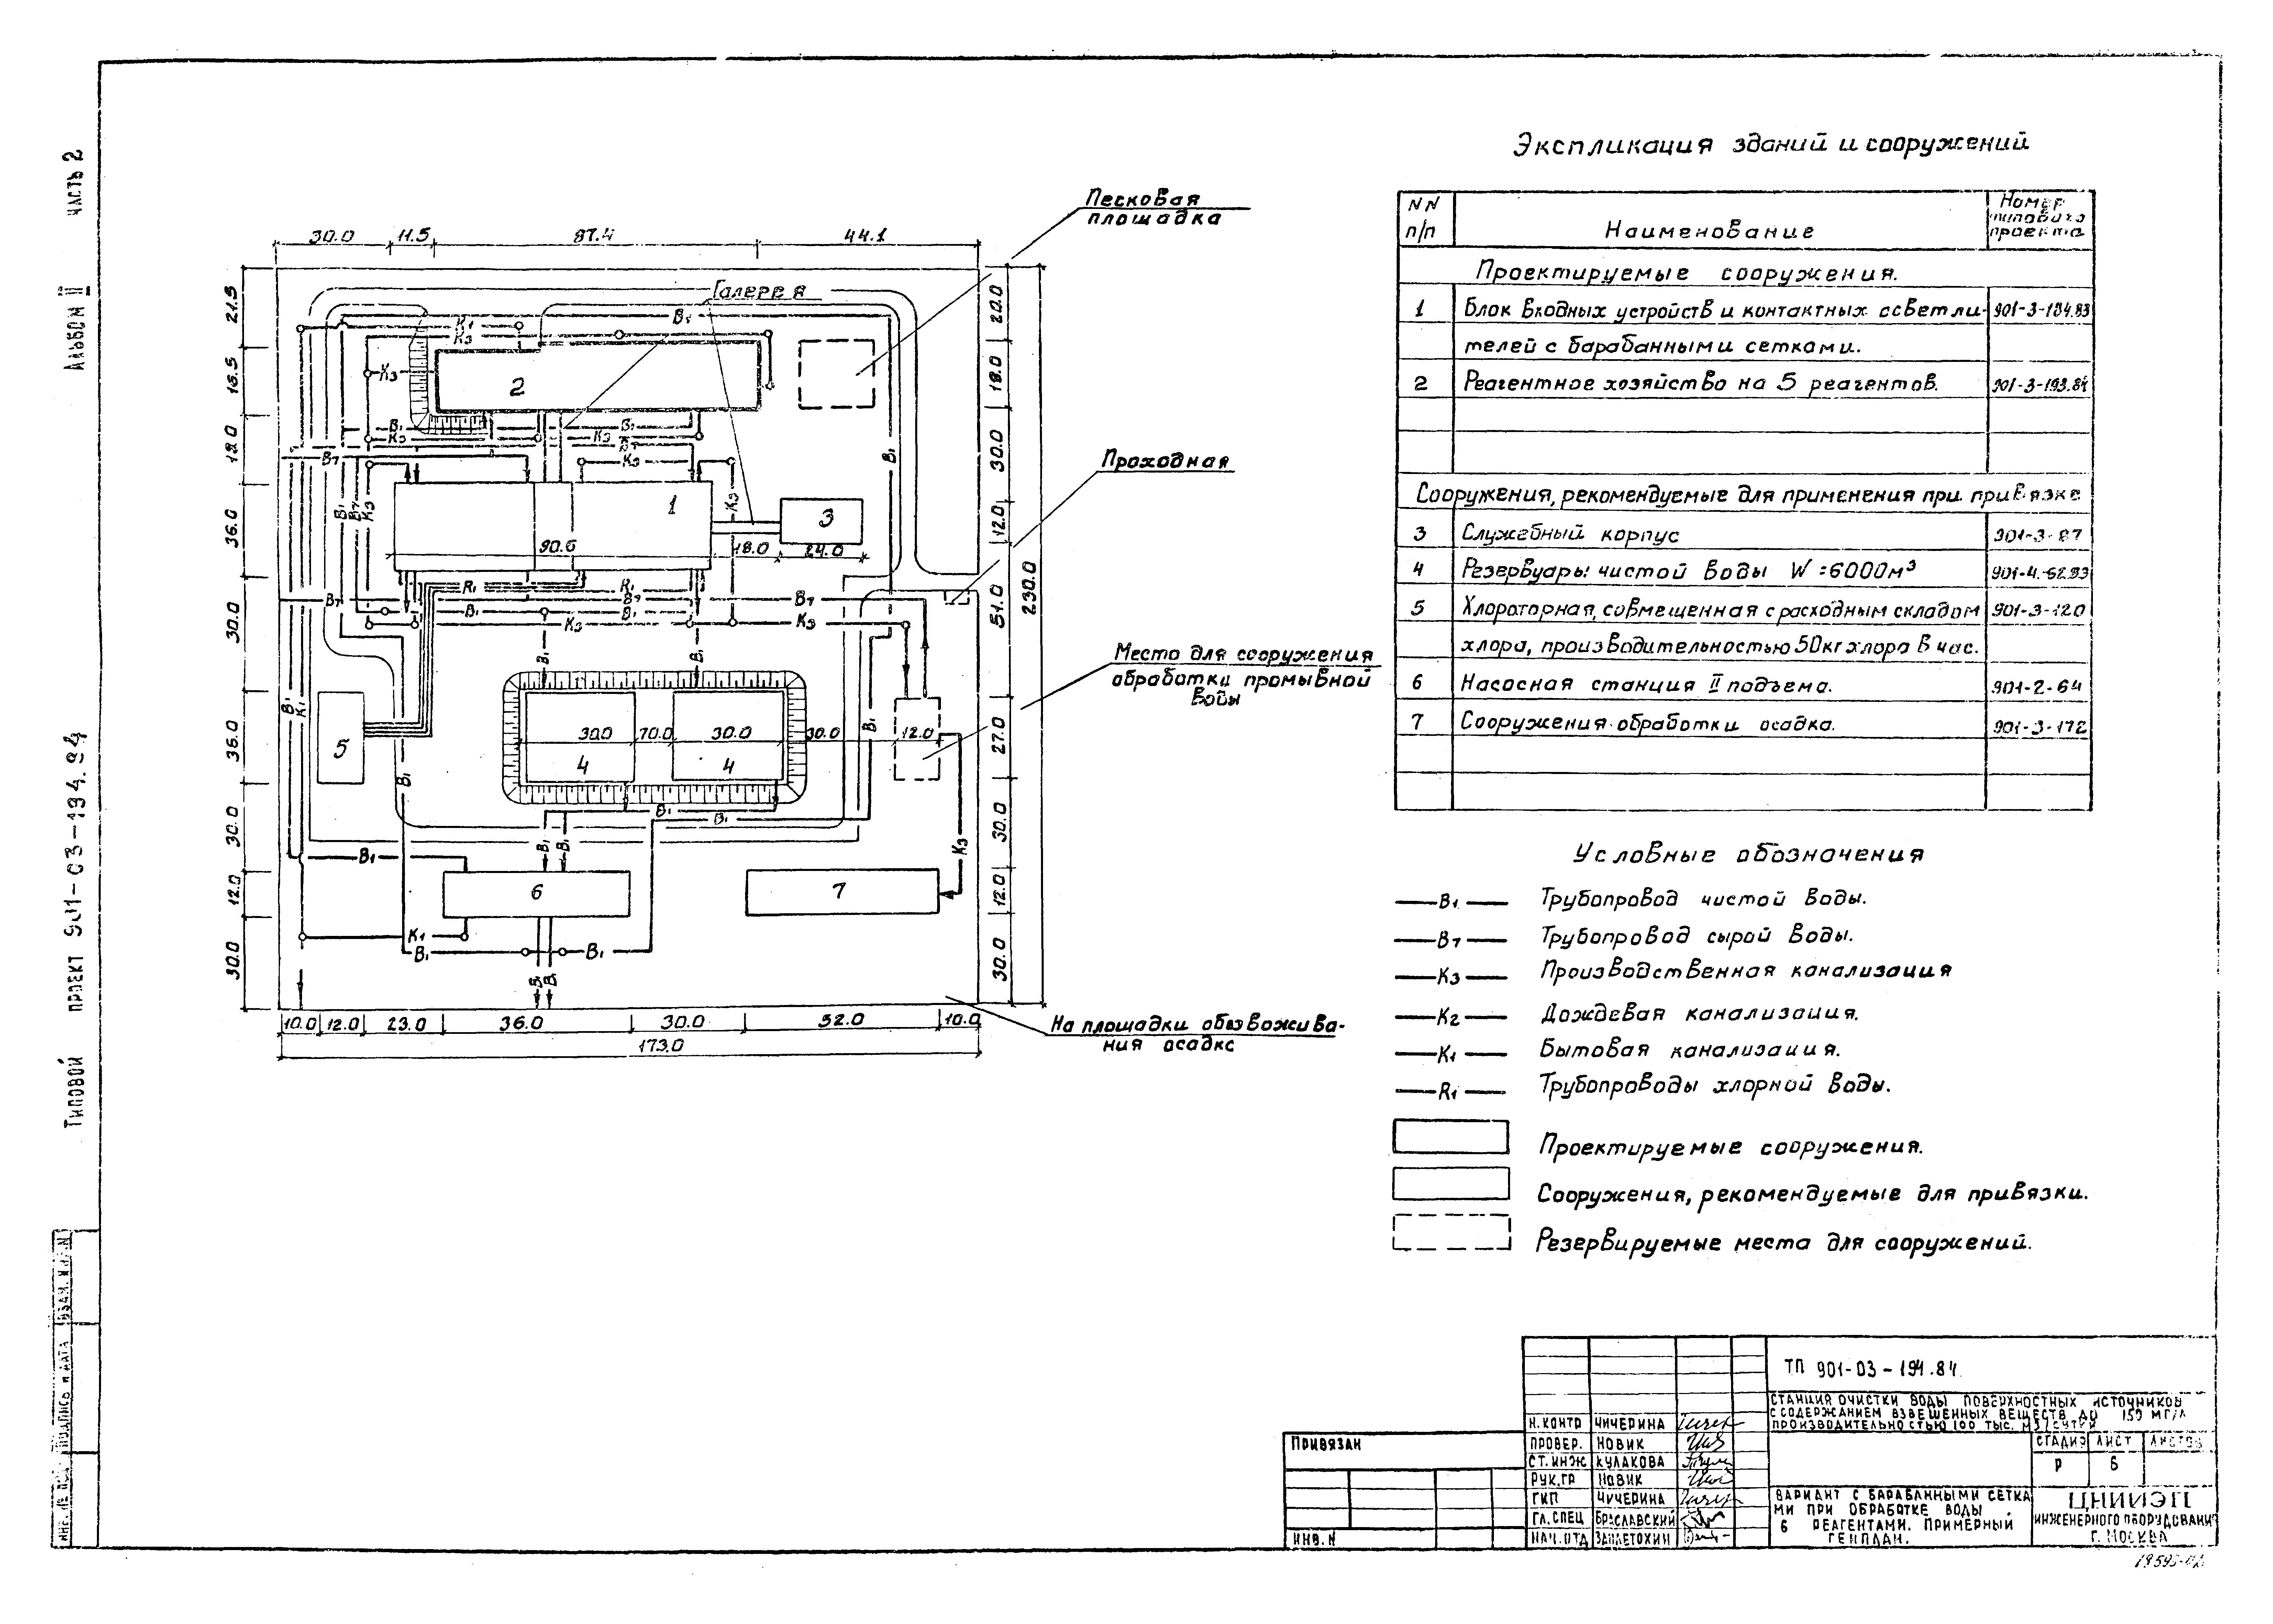 Альбом II часть 2
Типовой проект 901-03-194.84
Экспликация зданий и сооружений
NN п/п
Наименование
Номер типового проекта
Проектируемые сооружения.
1 Блок входных устройств и контактных осветли- 901-3-194.83
телей с барабанными сетками.
2 Реагентное хозяйство на 5 реагентов. 901-3-193.84
Сооружения, рекомендуемые для применения при привязке
3 Служебный корпус 901-3-87
4 Резервуары чистой воды W=6000м³ 901-4-62.83
5 Хлораторная, совмещенная с расходным складом 901-3-120
хлора, производительностью 50кг хлора в час.
6 Насосная станция II подъема. 901-2-64
7 Сооружения обработки осадка. 901-3-172
Условные обозначения
В1 Трубопровод чистой воды.
В7 Трубопровод сырой воды.
К3 Производственная канализация
К2 Дождевая канализация.
К1 Бытовая канализация.
R1 Трубопроводы хлорной воды.
Проектируемые сооружения.
Сооружения, рекомендуемые для привязки.
Резервируемые места для сооружений.
Песковая
площадка
Галерея
Проходная
Место для сооружения
обработки промывной
воды
На площадки обезвожива-
ния осадка
30.0 11.5 87.4 44.1
21.5
16.5
18.0
36.0
30.0
36.0
30.0
12.0
30.0
22.0
18.0
30.0
12.0
51.0
27.0
30.0
12.0
30.0
230.0
К1
К3
В1
К3
2
В1
К3
К3
В7
К3
К3
1
3
90.6 18.0 24.0
В1
В7
К3
В1
R1
В7
В7
В1
В1
В7
К3
К3
В1
В1
В1
К1
5
30.0 70.0 30.0 30.0 12.0
4 4
В1
В1
В1
В1
В1
В1
В1
К3
6
7
К1
В1
В1
В1
В1
10.0 12.0 23.0 36.0 30.0 52.0 10.0
173.0
Привязан
Инв. N
Н.контр Чичерина
Провер. Новик
Ст.инж Кулакова
Рук.гр Новик
ГИП Чичерина
Гл.спец Браславский
Нач.отд Заплетохин
ТП 901-03-194.84
Станция очистки воды поверхностных источников
с содержанием взвешенных веществ до 150 мг/л
производительностью 100 тыс. м3/сутки
Стадия Лист Листов
Р 6
Вариант с барабанными сетка
ми при обработке воды
6 реагентами. Примерный
генплан.
ЦНИИЭП
инженерного оборудования
г. Москва
Подпись и дата
Взам. инв.N